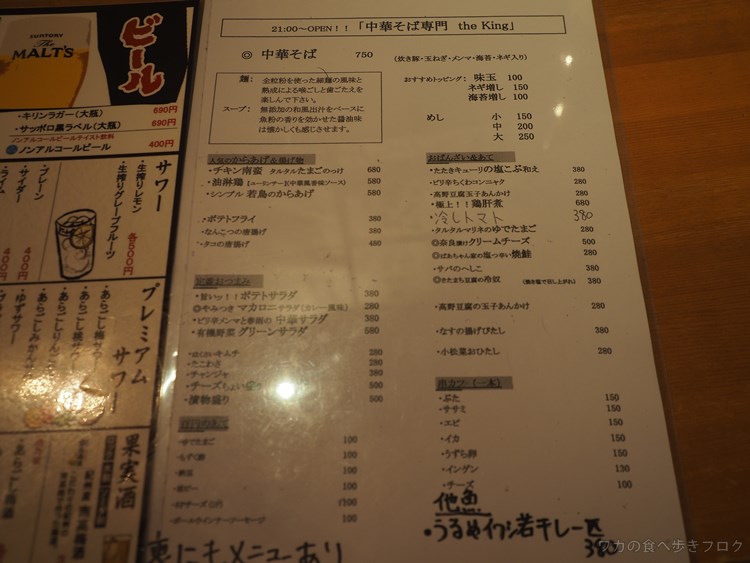 SUNTORY
The
MALT'S
ビール
・キリンラガー(大瓶) 690円
・サッポロ黒ラベル(大瓶) 690円
ノンアルコールビールテイスト飲料
ノンアルコールビール 400円
サワー
・生搾りレモン
・生搾りグレープフルーツ
各500円
・プレーン 400円
・サイダー 400円
・ライム
プレミアムサワー
・あらごし桃サワー
・あらごし梅サワー
・あらごしりんご
・あらごしみかん
・ゆずサワー
果実酒
・あらごし梅酒
21:00〜OPEN!!「中華そば専門 the King」
◎ 中華そば 750 (炊き豚・玉ねぎ・メンマ・海苔・ネギ入り)
麺: 全粒粉を使った細麺の風味と
熟成による喉ごしと歯ごたえを
楽しんで下さい。
スープ: 無添加の和風出汁をベースに
魚粉の香りを効かせた醤油味
は懐かしくも感じさせます。
おすすめトッピング: 味玉 100
ネギ増し 150
海苔増し 100
めし 小 150
中 200
大 250
人気のからあげ&揚げ物
・チキン南蛮 タルタルたまごのっけ 680
・油淋鶏【ユーリンチー】(中華風香味ソース) 580
・シンプル 若鳥のからあげ 580
・ポテトフライ 380
・なんこつの唐揚げ 380
・タコの唐揚げ 480
定番おつまみ
・旨いッ!!ポテトサラダ 380
◎やみつき マカロニサラダ(カレー風味) 280
・ピリ辛メンマと春雨の 中華サラダ 380
・有機野菜 グリーンサラダ 580
・はくさいキムチ 280
・たこわさ 280
・チャンジャ 380
・チーズちょい盛り 500
・漬物盛り 500
・ゆでたまご 100
・もずく酢 100
100
100
100
・ボールウインナーソーセージ 100
裏にもメニューあり
おばんざい&あて
・たたきキューリの塩こぶ和え 380
・ピリ辛ちくわコンニャク 280
・高野豆腐玉子あんかけ 280
・極上!!鶏肝煮 680
・冷しトマト 380
・タルタルマリネのゆでたまご 280
◎奈良漬けクリームチーズ 500
◎ばあちゃん家の塩っ辛い焼鮭 280
・サバのへしこ 380
◎きたまち豆腐の冷奴 280
・高野豆腐の玉子あんかけ 380
・なすの揚げびたし 380
・小松菜おひたし 280
串カツ(一本)
・ぶた 150
・ササミ 150
・エビ 150
・イカ 150
・うずら卵 150
・インゲン 150
・チーズ 150
他魚
・うるめイワシ若干し一匹
380